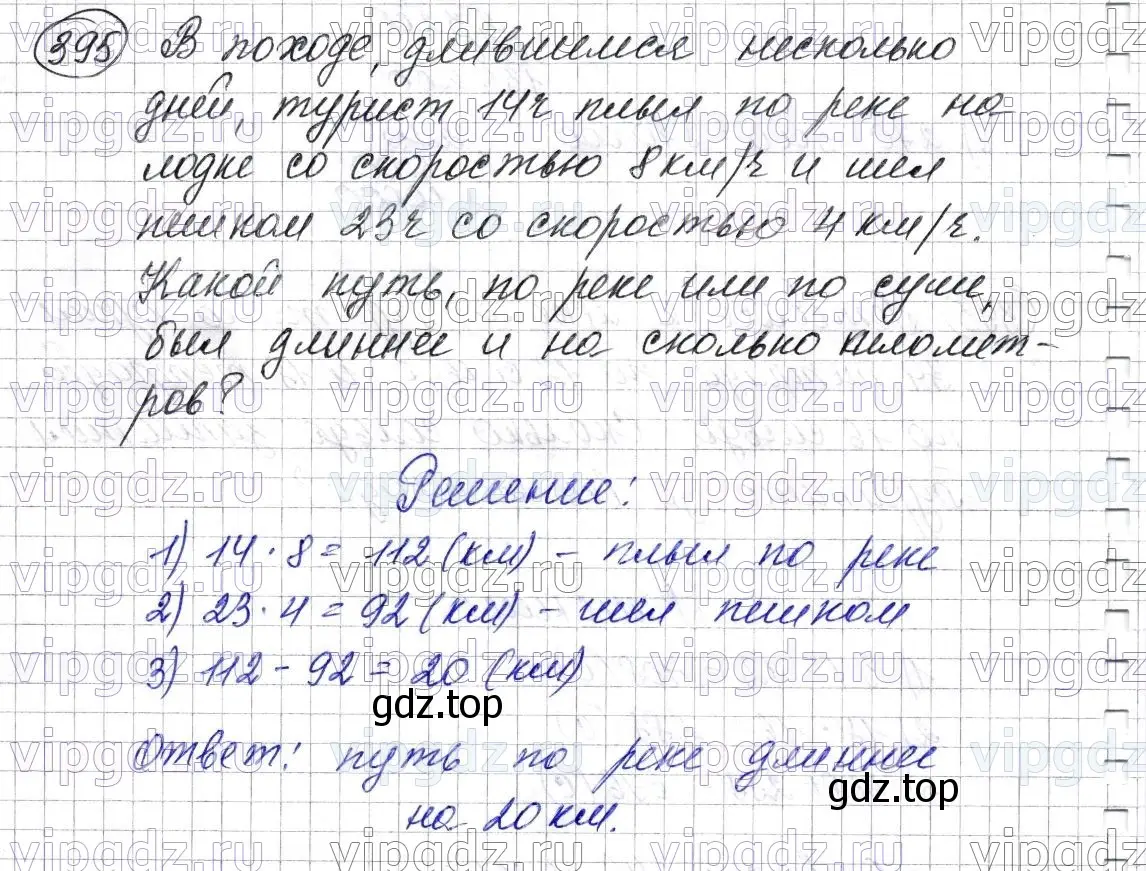 395 В походе, длившемся несколько
дней, турист 14ч плыл по реке на
лодке со скоростью 8 км/ч и шел
пешком 23ч со скоростью 4 км/ч.
Какой путь, по реке или по суше,
был длиннее и на сколько километ-
ров?
Решение:
1) 14 · 8 = 112 (км) - плыл по реке
2) 23 · 4 = 92 (км) - шел пешком
3) 112 - 92 = 20 (км)
gdz.top
Ответ: путь по реке длиннее
gdz.top
на 20 км.
vipgdz.ru